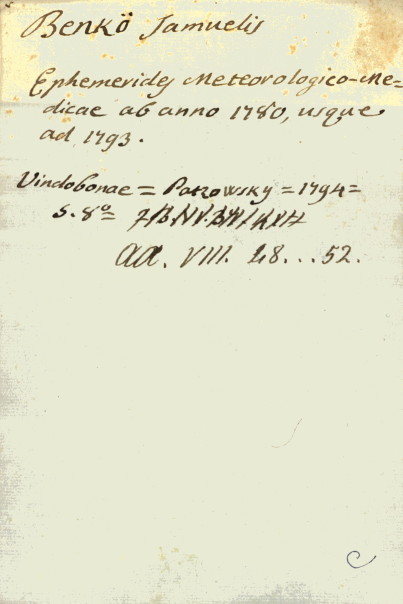 Benkö Samuelis
Ephemerides Meteorologico-Me=
dicae ab anno 1780, usque
ad 1793.
Vindobonae = Patzowsky = 1794=
5. 8º=
aa. VIII. 48...52.